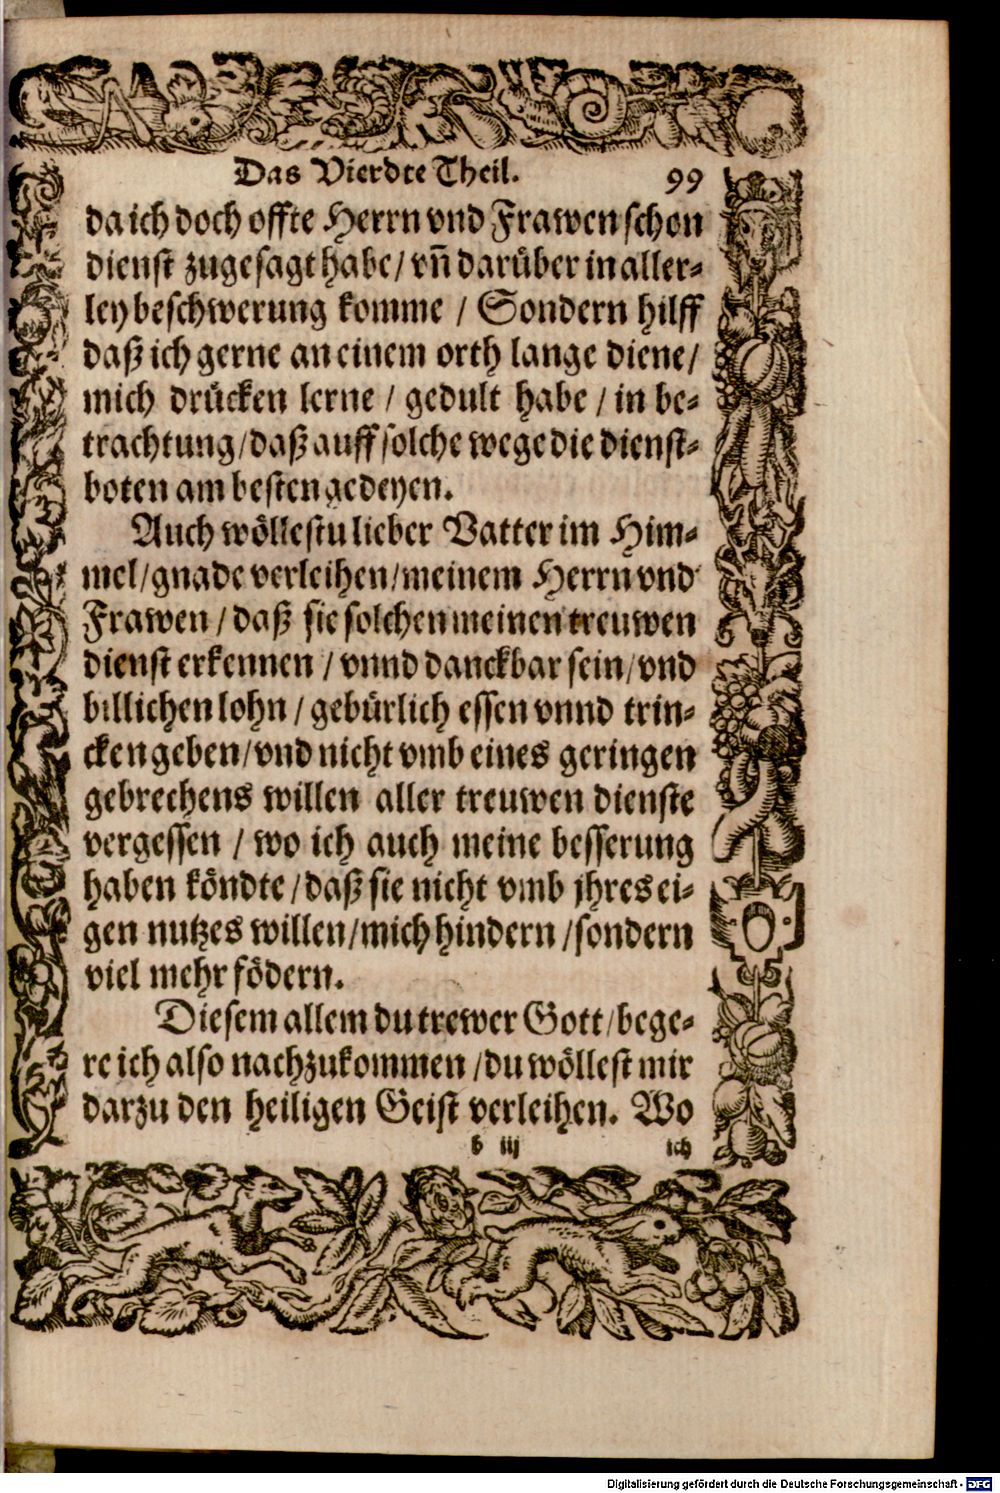 Das Vierdte Theil. 99
da ich doch offte Herrn vnd Frawen schon
dienst zugesagt habe/ vñ darüber in aller-
ley beschwerung komme / Sondern hilff
daß ich gerne an einem orth lange diene/
mich drücken lerne / gedult habe / in be-
trachtung/daß auff solche wege die dienst-
boten am besten gedeyen.
Auch wöllestu lieber Vatter im Him-
mel/gnade verleihen/meinem Herrn vnd
Frawen / daß sie solchen meinen treuwen
dienst erkennen / vnnd danckbar sein/vnd
billichen lohn / gebürlich essen vnnd trin-
cken geben/vnd nicht vmb eines geringen
gebrechens willen aller treuwen dienste
vergessen / wo ich auch meine besserung
haben köndte / daß sie nicht vmb jhres ei-
gen nutzes willen/mich hindern /sondern
viel mehr födern.
Diesem allem du trewer Gott/bege-
re ich also nachzukommen /du wöllest mir
darzu den heiligen Geist verleihen. Wo
b iij ich
Digitalisierung gefördert durch die Deutsche Forschungsgemeinschaft - DFG